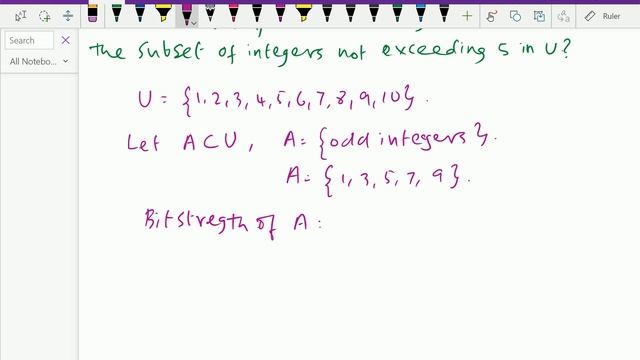 Ruler
Search
All Notebo...
the subset of integers not exceeding 5 in U?
U = {1,2,3,4,5,6,7,8,9,10}.
Let A⊂U, A = {odd integers}.
A = {1,3,5,7,9}.
Bitstregth of A: